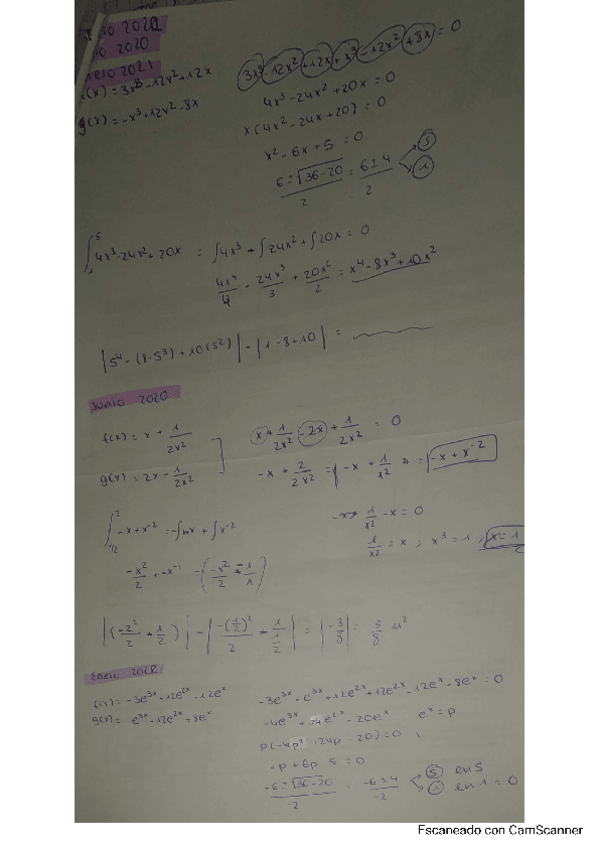 Enero 2021
f(x) = 3x³ - 12x² + 12x
g(x) = -x³ + 12x² - 8x
3x³ - 12x² + 12x + x³ - 12x² + 8x = 0
4x³ - 24x² + 20x = 0
x(4x² - 24x + 20) = 0
x² - 6x + 5 = 0
6 ± √36-20 / 2 = 6 ± 4 / 2 → 5, 1
∫₁⁵ 4x³ - 24x² + 20x = ∫4x³ + ∫24x² + ∫20x = 0
4x⁴/4 - 24x³/3 + 20x²/2 = x⁴ - 8x³ + 10x²
|5⁴ - (8·5³) + 10(5²)| - |1 - 8 + 10| =
Junio 2020
f(x) = x + 1/2x²
g(x) = 2x - 1/2x²
x + 1/2x² - 2x + 1/2x² = 0
-x + 2/2x² = -x + 1/x² = -x + x⁻²
∫ -x + x⁻² = -∫x + ∫x⁻²
1/x² - x = 0
1/x² = x ; x³ = 1 ; x = 1
-x²/2 + -x⁻¹
|(-2²/2 + 1/2)| - |-(1/2)²/2 + 1/(1/2)| = |-3/8| = 3/8 u²
-3e³ˣ - e³ˣ + 12e²ˣ + 12e²ˣ - 12eˣ - 8eˣ = 0
g(x) = e³ˣ - 12e²ˣ + 8eˣ
-4e³ˣ + 24e²ˣ - 20eˣ eˣ = p
p(-4p² + 24p - 20) = 0
-6 ± √36-20 / 2 = -6 ± 4 / -2
5 ln 5
1 ln 1 = 0
Escaneado con CamScanner